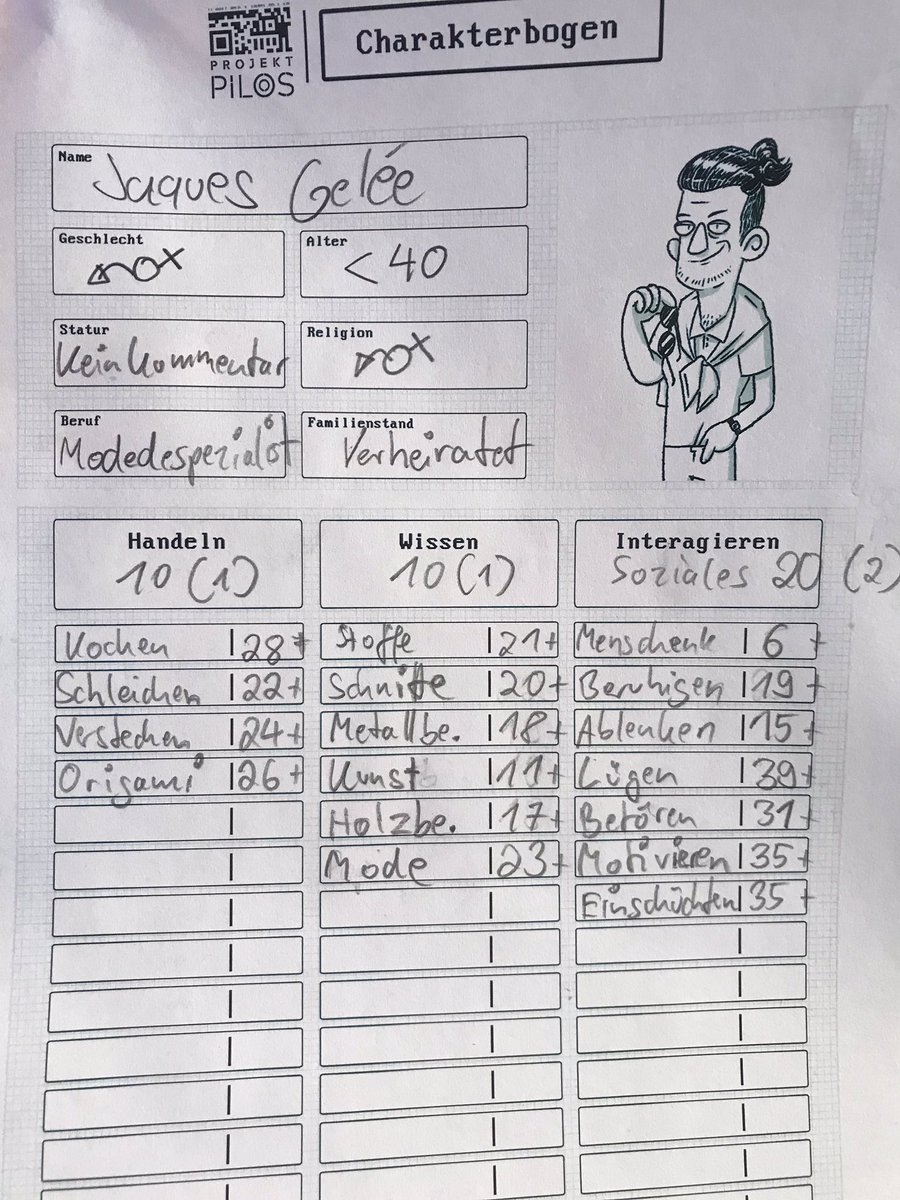 PROJEKT
PiLOS
Charakterbogen
Name
Jaques Gelée
Geschlecht
Alter
< 40
Statur
Kein Kommentar
Religion
Beruf
Modedespezialist
Familienstand
Verheiratet
Handeln
10 (1)
Wissen
10 (1)
Interagieren
Soziales 20 (2)
Kochen | 28 +
Stoffe | 21 +
Menschenk | 6 +
Schleichen | 22 +
Schnitte | 20 +
Beruhigen | 19 +
Verstecken | 24 +
Metallbe. | 18 +
Ablenken | 15 +
Origami | 26 +
Kunst | 11 +
Lügen | 39 +
Holzbe. | 17 +
Betören | 31 +
Mode | 23 +
Motivieren | 35 +
Einschüchten | 35 +